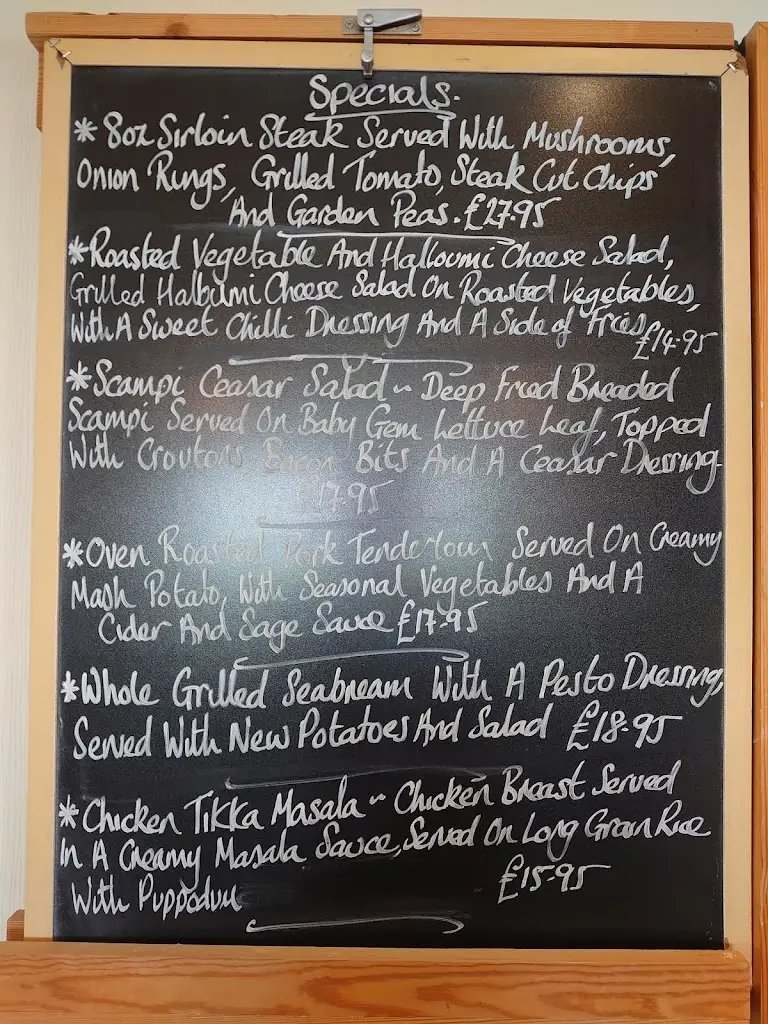 Specials.
* 8oz Sirloin Steak Served With Mushrooms,
Onion Rings, Grilled Tomato, Steak Cut Chips
And Garden Peas. £27.95
* Roasted Vegetable And Halloumi Cheese Salad,
Grilled Halloumi Cheese Salad On Roasted Vegetables,
With A Sweet Chilli Dressing And A Side of Fries £14.95
* Scampi Ceasar Salad ~ Deep Fried Breaded
Scampi Served On Baby Gem Lettuce Leaf, Topped
With Croutons Bacon Bits And A Ceasar Dressing.
£17.95
* Oven Roasted Pork Tenderloin Served On Creamy
Mash Potato, With Seasonal Vegetables And A
Cider And Sage Sauce £17.95
* Whole Grilled Seabream With A Pesto Dressing,
Served With New Potatoes And Salad £18.95
* Chicken Tikka Masala ~ Chicken Breast Served
In A Creamy Masala Sauce, Served On Long Grain Rice
With Puppodum £15.95